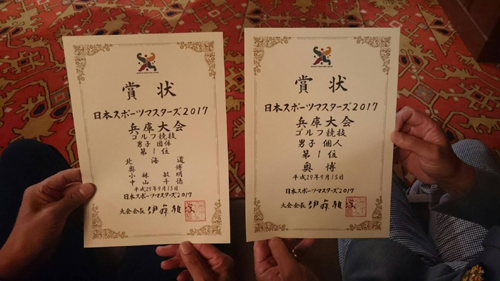 賞状
日本スポーツマスターズ2017
兵庫大会
ゴルフ競技
男子 団体
第1位
北海道
奥 博
小林敏明
中山千徳
平成29年9月15日
日本スポーツマスターズ2017
大会会長
賞状
日本スポーツマスターズ2017
兵庫大会
ゴルフ競技
男子 個人
第1位
奥 博
平成29年9月15日
日本スポーツマスターズ2017
大会会長